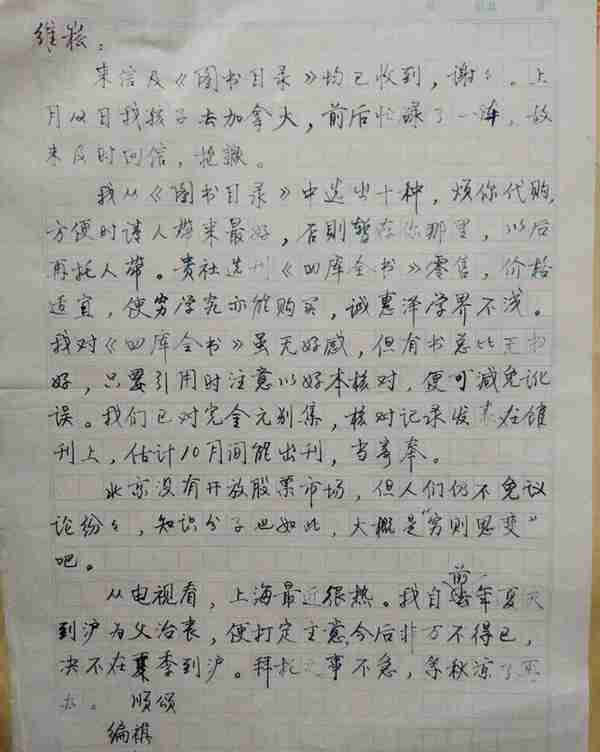 维崧：
来信及《图书目录》均已收到，谢々。上
月双日我孩子去加拿大，前后忙碌了一阵，故
未及时回信，抱歉。
我从《图书目录》中选出十种，烦你代购，
方便时请人带来最好，否则暂存你那里，以后
再托人带。贵社选刊《四库全书》零售，价格
适宜，使穷学究亦能购买，诚惠泽学界不浅。
我对《四库全书》虽无好感，但有书总比无书
好，只要引用时注意以好本核对，便可减免讹
误。我们已对完金元别集，核对记录发表在馆
刊上，估计10月间能出刊，当寄奉。
北京没有开放股票市场，但人们仍不免议
论纷々，知识分子也如此，大概是“穷则思变”
吧。
从电视看，上海最近很热。我自前年夏天
到沪为父治丧，便打定主意今后非万不得已，
决不在夏季到沪。拜托之事不急，等秋凉了再
办。 顺颂
编祺